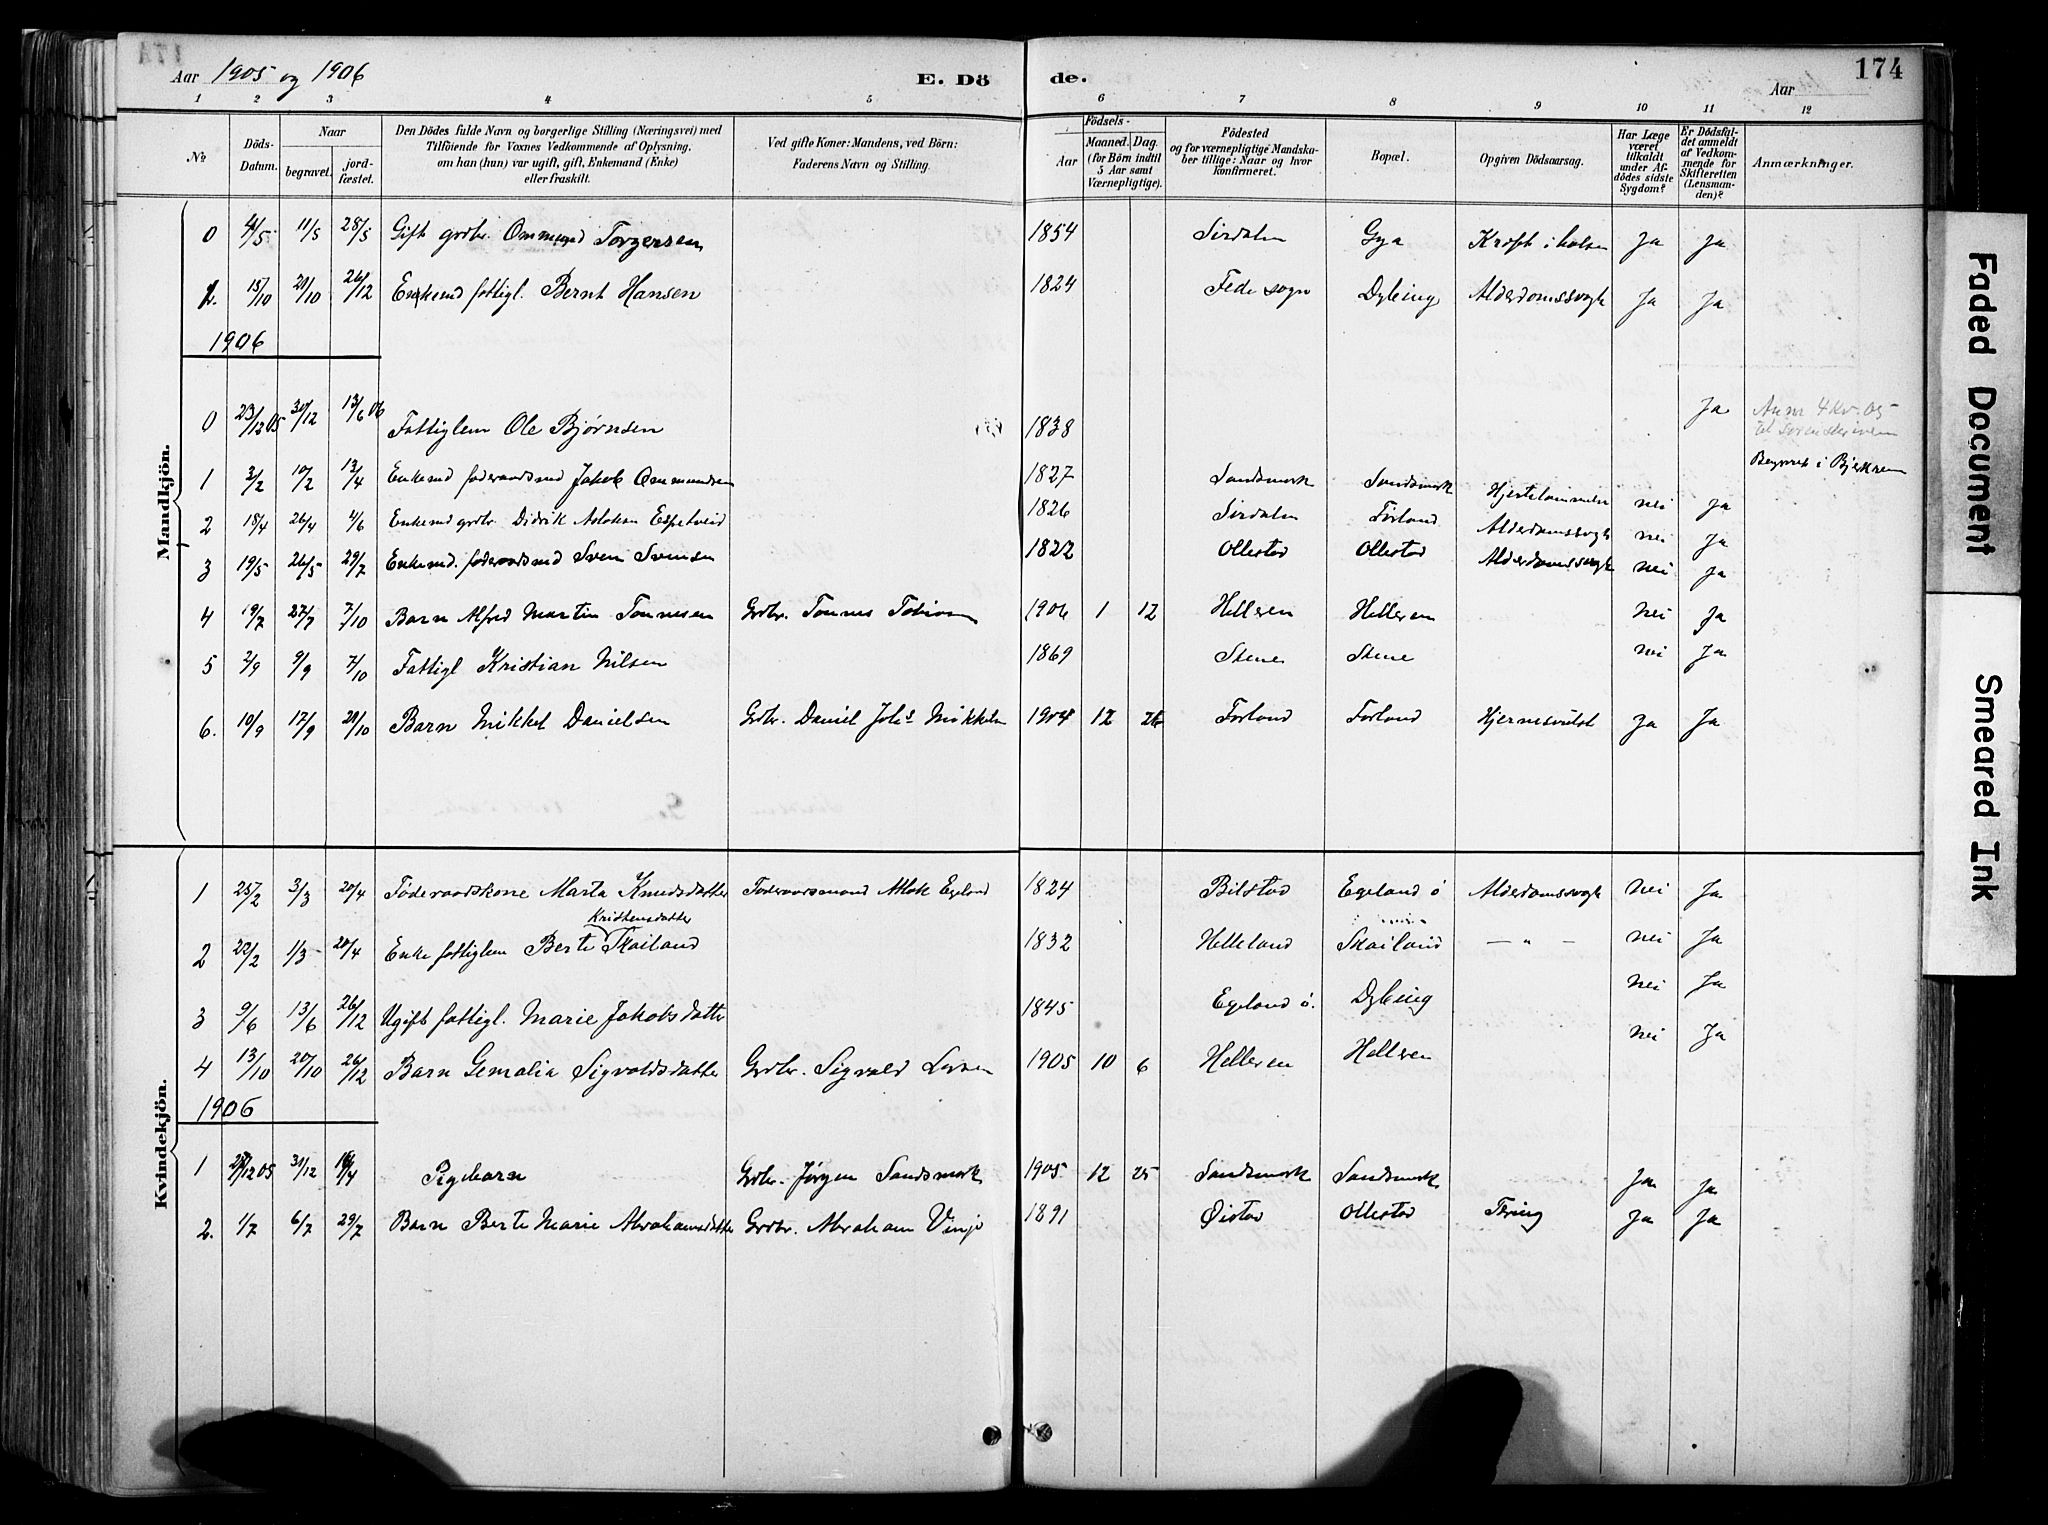 174
Aar 1905 og 1906 E. Dö de. Aar
1 2 3 4 5 6 7 8 9 10 11 12
No Döds-Datum. Naar begravet. jord-fæstet. Den Dödes fulde Navn og borgerlige Stilling (Næringsvei) med Tilföiende for Voxnes Vedkommende af Oplysning, om han (hun) var ugift, gift, Enkemand (Enke) eller fraskilt. Ved gifte Koner: Mandens, ved Börn: Faderens Navn og Stilling. Födsels- Aar Maaned. Dag. (for Börn indtil 5 Aar samt Værnepligtige). Födested og for værnepligtige Mandskaber tillige: Naar og hvor konfirmeret. Bopæl. Opgiven Dödsaarsag. Har Læge været tilkaldt under Afdödes sidste Sygdom? Er Dödsfaldet anmeldt af Vedkommende for Skifteretten (Lensmanden)? Anmærkninger.
Mandkjön.
0 4/5 11/5 28/5 Gift grdbr. Ommund Torgersen 1854 Sirdalen Gya Kræft i halsen Ja Ja
1. 15/10 21/10 26/12 Enkemd fattigl. Bernt Hansen 1824 Fede sogn Dybing Alderdomssvagh Ja Ja
1906
0 23/12 05 30/12 13/6 06 Fattiglem Ole Bjørnsen 1838 Ja Anm 4 Kv. 05 til sorenskriveren
1 3/2 10/2 13/4 Enkemd føderaadsmd Jakob Ommundsen 1827 Sandsmark Sandsmark nei Ja Begravet i Bjerkrem
2 18/4 26/4 4/6 Enkemd grdbr. Didrik Aslaksen Espetveid 1826 Sirdalen Førland Alderdomssvagh nei Ja
3 19/5 26/5 29/7 Enkemd. føderaadsmd Sven Svensen 1822 Ollestad Ollestad Alderdomssvagh nei Ja
4 19/7 27/7 7/10 Barn Alfred Martin Tønnesen Grdbr. Tønnes Tobiasen 1906 1 12 Helleren Helleren nei Ja
5 2/9 9/9 7/10 Fattigl Kristian Nilsen 1869 Stene Stene nei Ja
6. 10/9 17/9 21/10 Barn Mikkel Danielsen Grdbr. Daniel Johs Mikkelsen 1904 12 26 Førland Førland Hjernesvulst Ja Ja
Kvindekjön.
1 25/2 3/3 20/4 Føderaadskone Marta Knudsdatter Føderaadsmand Aslak Egeland 1824 Bilstad Egeland ø Alderdomssvagh Nei Ja
2 20/2 1/3 20/4 Enke fattiglem Berte Kristensdatter Skailand 1832 Helleland Skailand — " — nei Ja
3 9/6 13/6 26/12 Ugift fattigl. Marie Jakobsdatter 1845 Egeland ø. Dybing nei Ja
4 13/10 20/10 26/12 Barn Gemalia Sigvaldsdatter Grdbr. Sigvald Larsen 1905 10 6 Helleren Helleren nei Ja
1906
1 12 05 31/12 Pigebarn Grdbr. Jørgen Sandsmark 1905 12 25 Sandsmark Sandsmark Ja Ja
2. 1/7 6/7 29/7 Barn Berte Marie Abrahamsdatter Grdbr. Abraham Vinje 1891 Øistad Ollestad Tæring Ja Ja
Faded Document
Smeared Ink